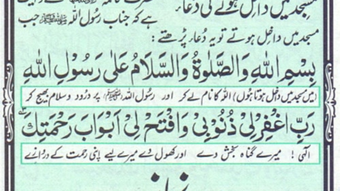 مسجد میں داخل ہونے کی دعا
ہے کہ جناب رسول اللہ ﷺ جب
مسجد میں داخل ہوتے تو یہ دعا پڑھتے:
بِسْمِ اللهِ وَالصَّلٰوةُ وَالسَّلَامُ عَلٰى رَسُوْلِ اللهِ
(میں مسجد میں داخل ہوتا ہوں) اللہ کا نام لے کر اور رسول اللہ ﷺ پر درود و سلام بھیج کر
رَبِّ اغْفِرْلِیْ ذُنُوْبِیْ وَافْتَحْ لِیْ اَبْوَابَ رَحْمَتِكَ
الٰہی! میرے گناہ بخش دے اور کھول دے میرے لیے اپنی رحمت کے دروازے